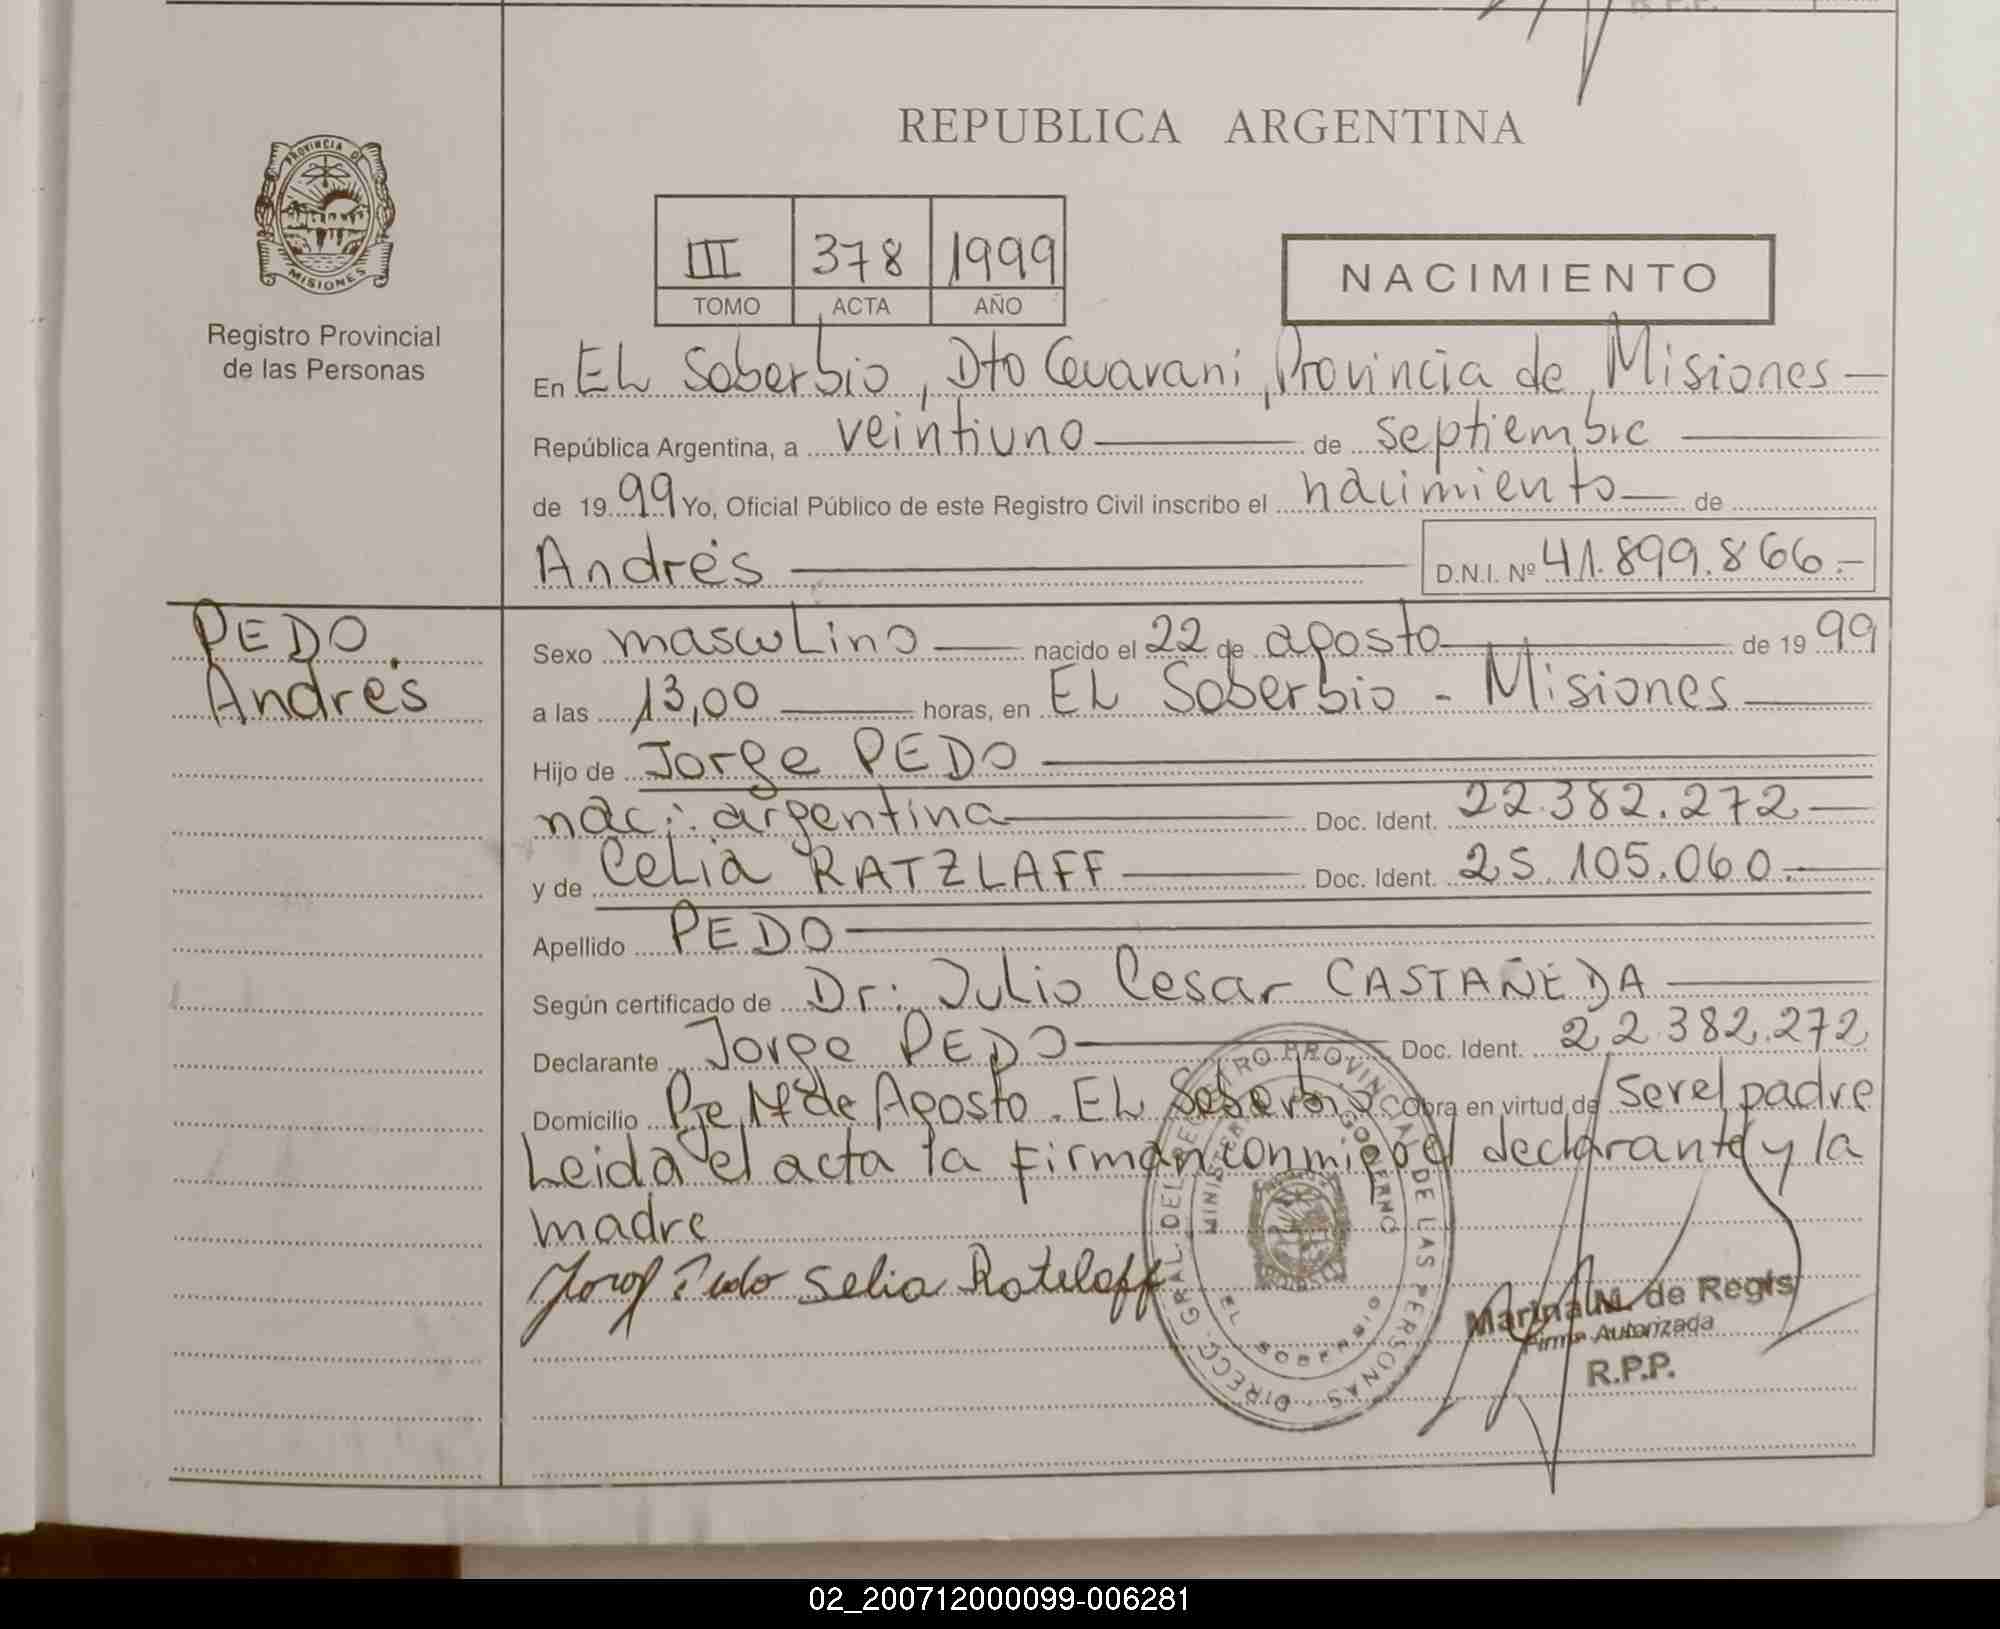 REPUBLICA ARGENTINA
PROVINCIA DE
MISIONES
Registro Provincial
de las Personas
III 378 1999
TOMO ACTA AÑO
NACIMIENTO
En EL Soberbio, Dto Guarani, Provincia de Misiones
República Argentina, a veintiuno de septiembre
de 1999 Yo, Oficial Público de este Registro Civil inscribo el nacimiento de
Andrés D.N.I. Nº 41.899.866.-
PEDO
Andrés
Sexo masculino nacido el 22 de agosto de 1999
a las 13,00 horas, en EL Soberbio - Misiones
Hijo de Jorge PEDO
nac: argentina Doc. Ident. 22.382.272
y de Celia RATZLAFF Doc. Ident. 25.105.060.-
Apellido PEDO
Según certificado de Dr: Julio Cesar CASTAÑEDA
Declarante Jorge PEDO Doc. Ident. 22.382.272
Domicilio Pje de Agosto. EL Soberbio Obra en virtud de ser el padre
Leida el acta la firman conmigo el declarante y la
madre
Jorge Pedo Selia Ratzlaff
DIRECC. GRAL. DEL REGISTRO PROVINCIAL DE LAS PERSONAS
EL SOBERBIO
Marina N. de Regis
Firma Autorizada
R.P.P.
02_200712000099-006281